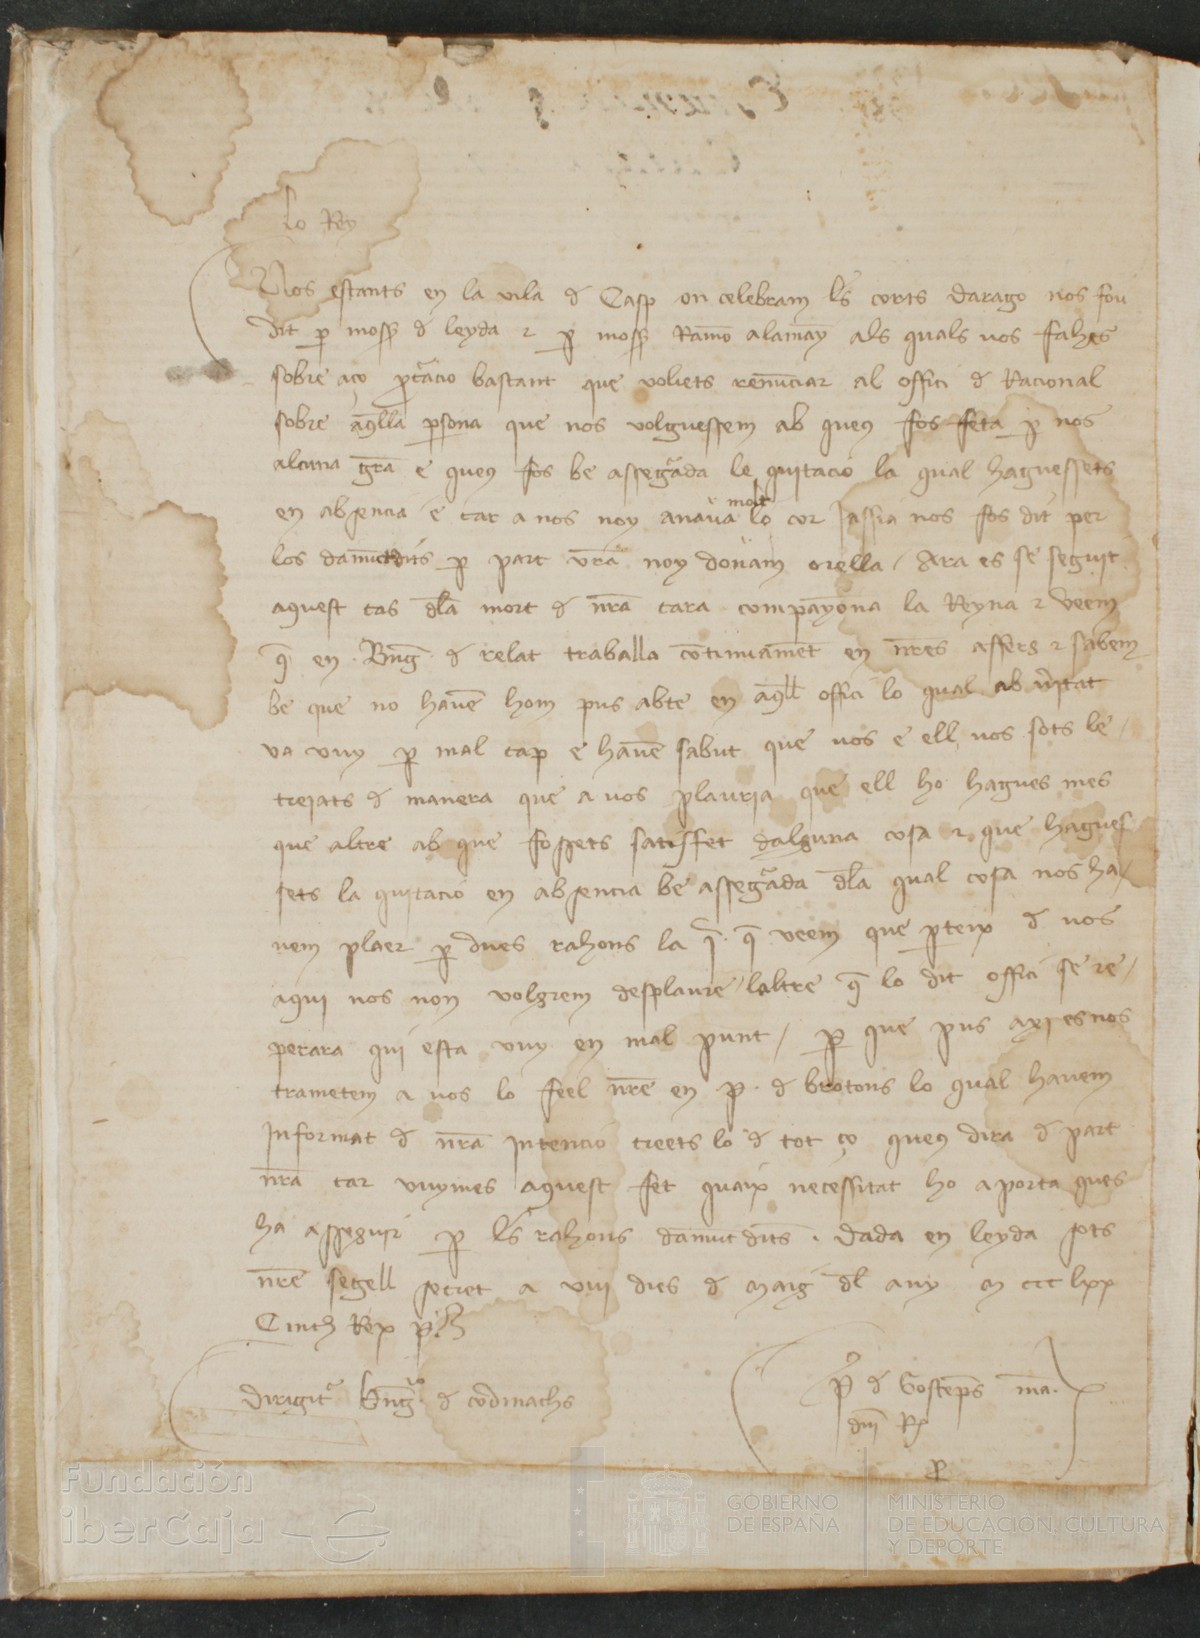 Lo Rey
Nos estants en la vila d Casp on celebram les corts darago nos fou
dit p mosse d leyda e p mosse Ramo alamay als quals vos fahes
sobre aço bastant que voliets renunciar al offici d Racional
sobre aqlla psona que nos volguessem ab queus fos feta p nos
alcuna gra e queus fos be assegada le quitacio la qual haguessets
en absencia e car a nos noy anava molt lo cor jassia nos fos dit per
los damuntdits p part vra noy donam orella / Ara es se seguit
aquest cas dla mort d nra cara companyona la Reyna e veem
q en Bng d relat traballa continuament en nres affers e sabem
be que no havem hom pus abte en aqll offici lo qual ab vitat
va vuy p mal cap e havem sabut que vos e ell vos sots le/
trejats d manera que a vos plauria que ell ho hagues mes
que altre ab que fossets satisfet dalguna cosa e que hagues
sets la quitacio en absencia be assegada dla qual cosa nos ha/
vem plaer p dues rahons la j q veem que pteix d vos
aqui nos non volgrem desplaure / laltre q lo dit offici se re/
perara qui esta vuy en mal punt / p que pus axi es nos
trametem a vos lo feel nre en p. d brotons lo qual havem
Informat d nra intencio creets lo d tot ço queus dira d part
nra car vuymes aquest fet quaix necessitat ho aporta ques
ha asseguir p les rahons damunt dits . Dada en leyda sots
nre segell secret a viii dies d Maig dl any M ccc lxx
Cinch Rex p.
Dirigit Bng d codinachs
P d Gosteps ma.
dni R
P
Fundación
iberCaja
GOBIERNO
DE ESPAÑA
MINISTERIO
DE EDUCACIÓN, CULTURA
Y DEPORTE